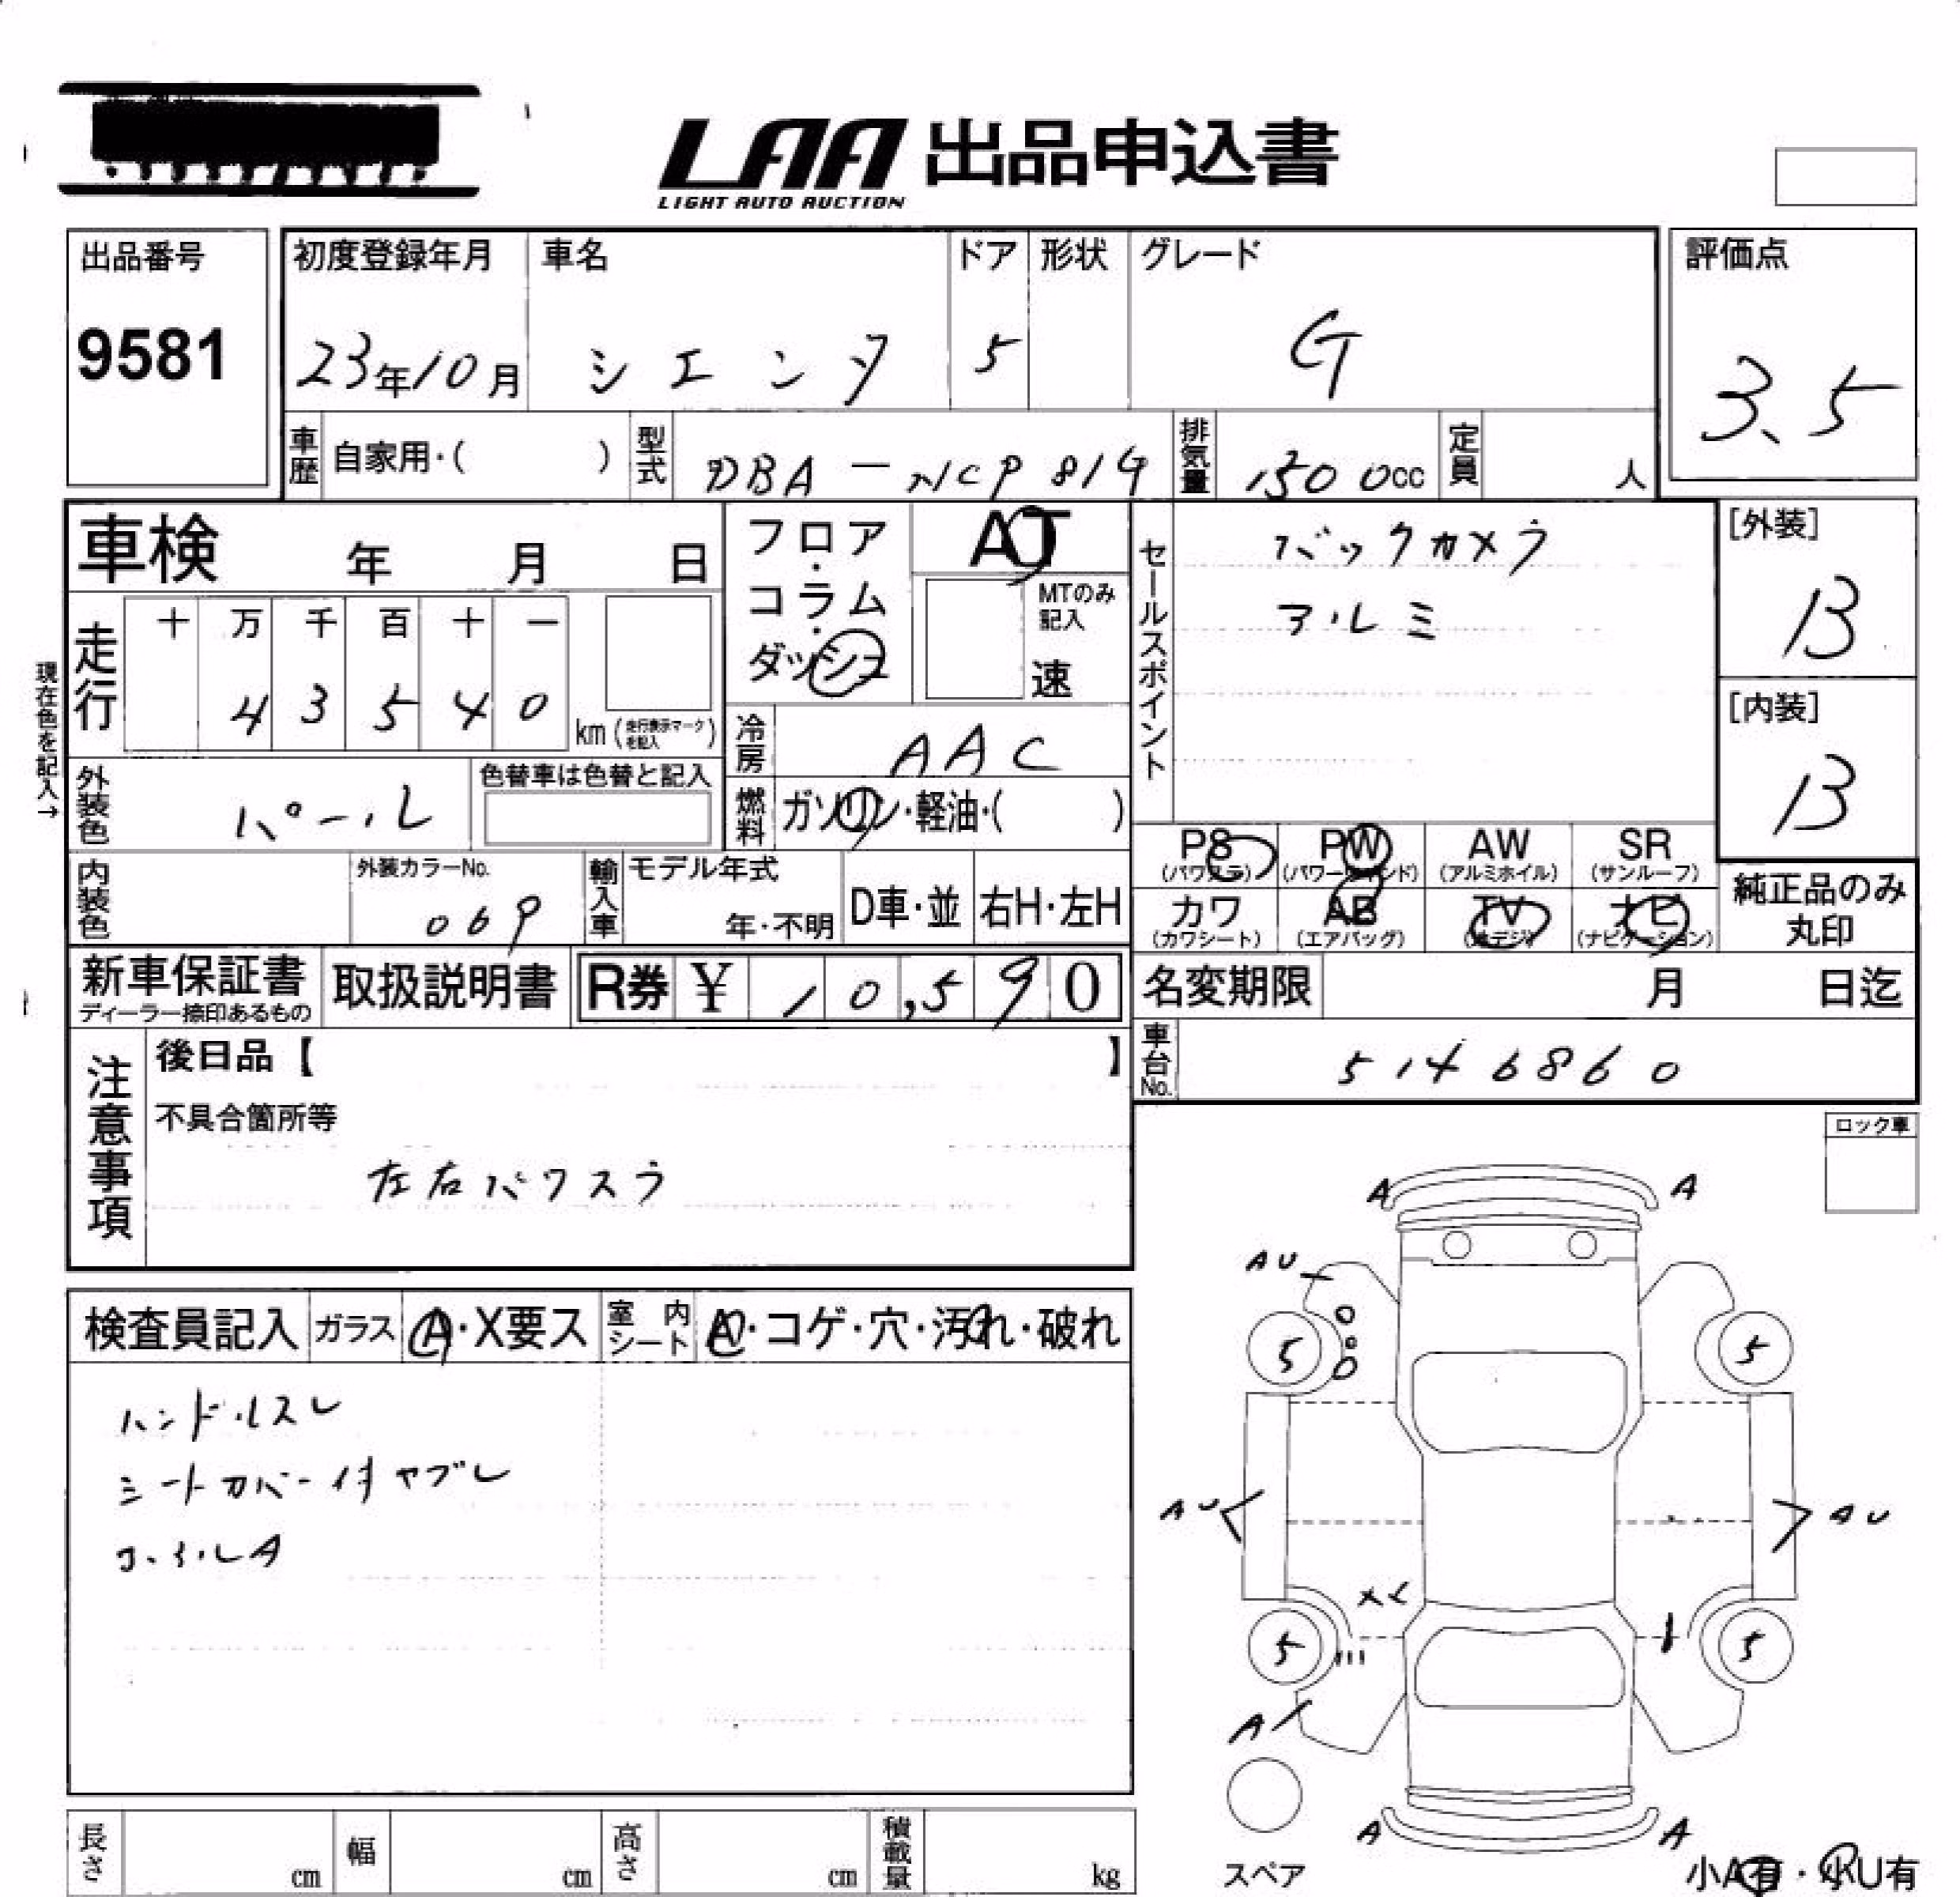 LAA 出品申込書
LIGHT AUTO AUCTION
出品番号
9581
初度登録年月 車名 ドア 形状 グレード
23年10月 シエンタ 5 G
評価点
3.5
車歴 自家用・( ) 型式 DBA-NCP81G 排気量 1500cc 定員 人
車検 年 月 日
フロア・コラム・ダッシュ
AT
MTのみ記入
速
セールスポイント
バックカメラ
アルミ
[外装]
B
[内装]
B
現在色を記入→
走行
十 万 千 百 十 一
4 3 5 4 0
km (走行表示マークを記入)
冷房 AAC
外装色 パール
色替車は色替と記入
燃料 ガソリン・軽油・( )
PS PW AW SR
(パワステ) (パワーウインド) (アルミホイル) (サンルーフ)
カワ AB TV ナビ
(カワシート) (エアバッグ) (地デジ) (ナビゲーション)
純正品のみ
丸印
内装色
外装カラーNo.
069
輸入車 モデル年式
年・不明
D車・並 右H・左H
新車保証書
ディーラー捺印あるもの
取扱説明書
R券 ¥ 10,590
名変期限 月 日迄
車台No. 5146860
注意事項
後日品【 】
不具合箇所等
左右パワスラ
ロック車
検査員記入 ガラス A・X要ス 室内シート A・コゲ・穴・汚れ・破れ
ハンドルスレ
シートカバー付ヤブレ
ホイルA
A A
AU
5 5
AU AU
5 5
A
A A
スペア
小A有・小U有
長さ cm 幅 cm 高さ cm 積載量 kg